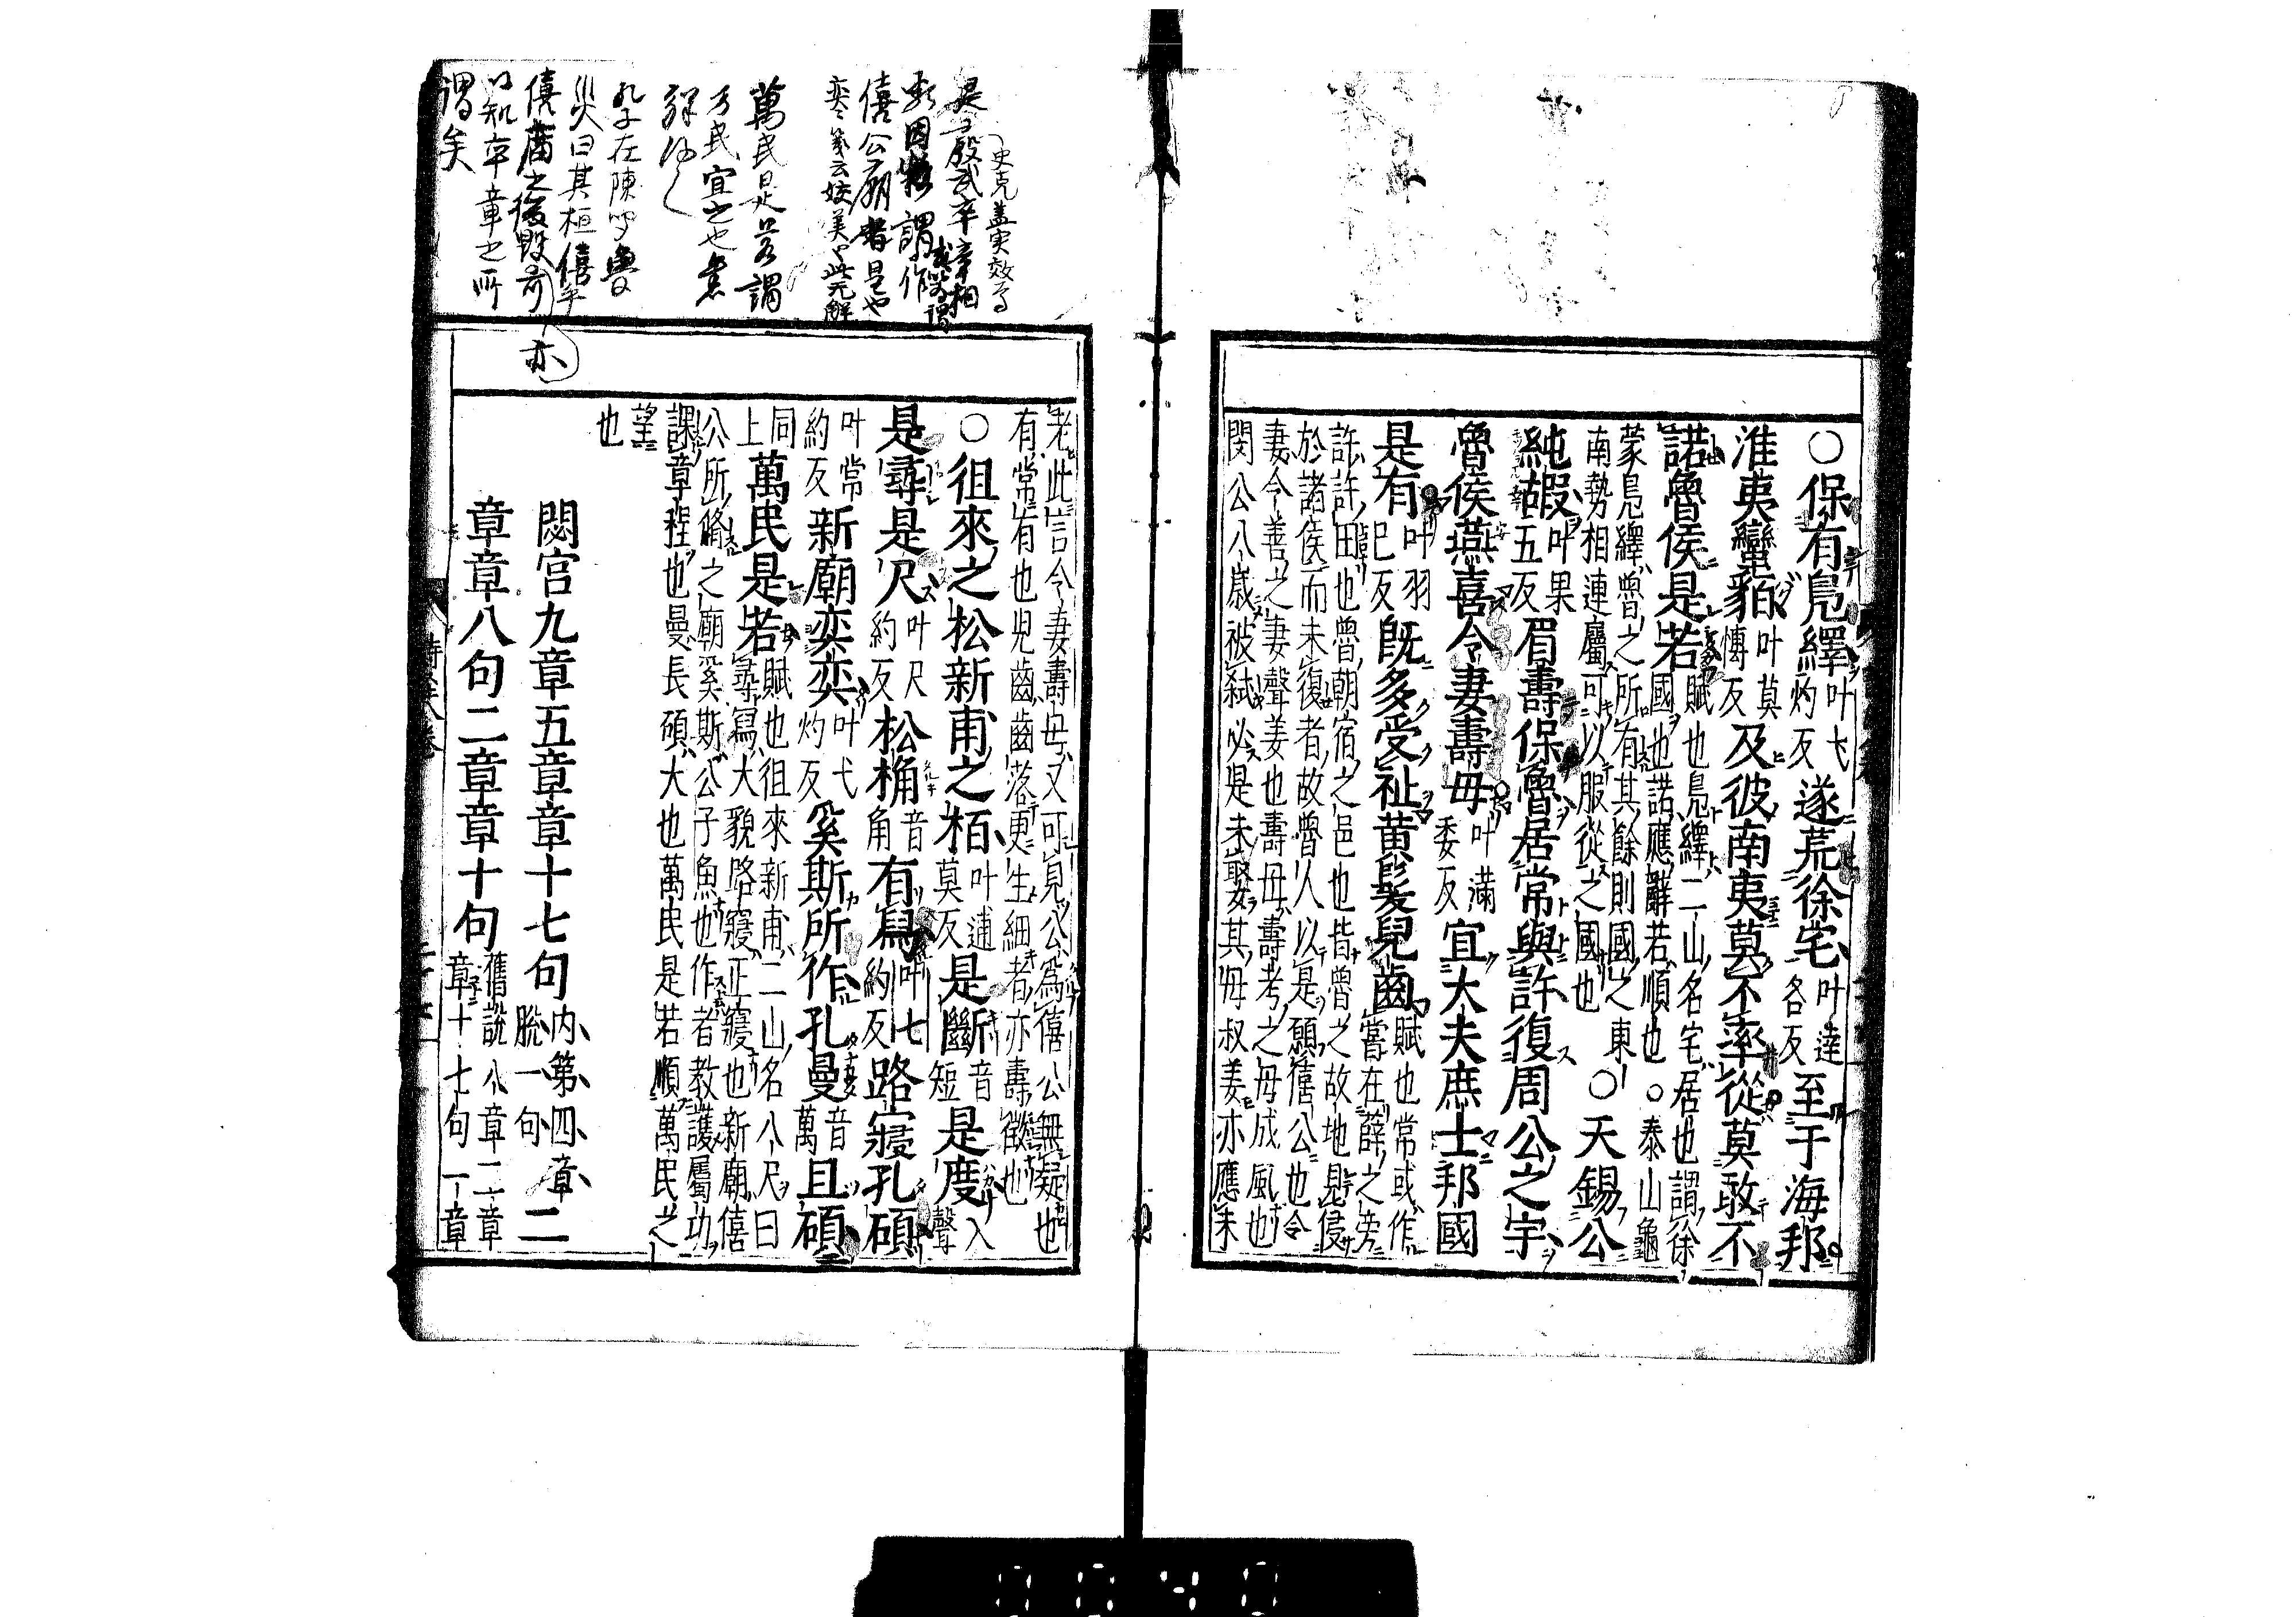 ○保有鳧繹叶弋灼反遂荒徐宅叶達各反至于海邦
淮夷蠻貊叶莫愽反及彼南夷莫不率從莫敢不
諾魯侯是若賦也鳧繹二山名宅居也謂徐國也諾應辭若順也○泰山龜
蒙鳧繹魯之所有其餘則國之東南勢相連屬可以服從之國也○天錫公
純嘏叶果五反眉壽保魯居常與許復周公之宇
魯侯燕喜令妻壽母叶滿委反宜大夫庶士邦國
是有叶羽已反旣多受祉黄髮兒齒賦也常或作嘗在薛之旁
許許田也魯朝宿之邑也皆魯之故地見侵
於諸侯而未復者故魯人以是願僖公也令
妻令善之妻聲姜也壽母壽考之母成風也
閔公八歲被弑必是未娶其母叔姜亦應未
老此言令妻壽母又可見公爲僖公無疑也
有常有也兒齒齒落更生細者亦壽徵也
○徂來之松新甫之栢叶逋莫反是斷音短是度入聲
是尋是尺叶尺約反松桷音角有舃叶七約反路寢孔碩
叶常約反新廟奕奕叶弋灼反奚斯所作孔曼音萬且碩
同上萬民是若賦也徂來新甫二山名八尺曰尋舃大貌路寢正寢也新廟僖
公所脩之廟奚斯公子魚也作者教護屬功
課章程也曼長碩大也萬民是若順萬民之
望也
閟宮九章五章章十七句内第四章脫一句二
章章八句二章章十句舊說八章二章章十七句一章
史克蓋宲效
是殷武卒章相
僖公廟者是也
奕〻箋云姣美也此无解
萬民是若謂
万民宜之也
孔子在陳聞魯
災曰其桓僖乎
僖廟之後毀亦可
以知卒章之所
謂矣